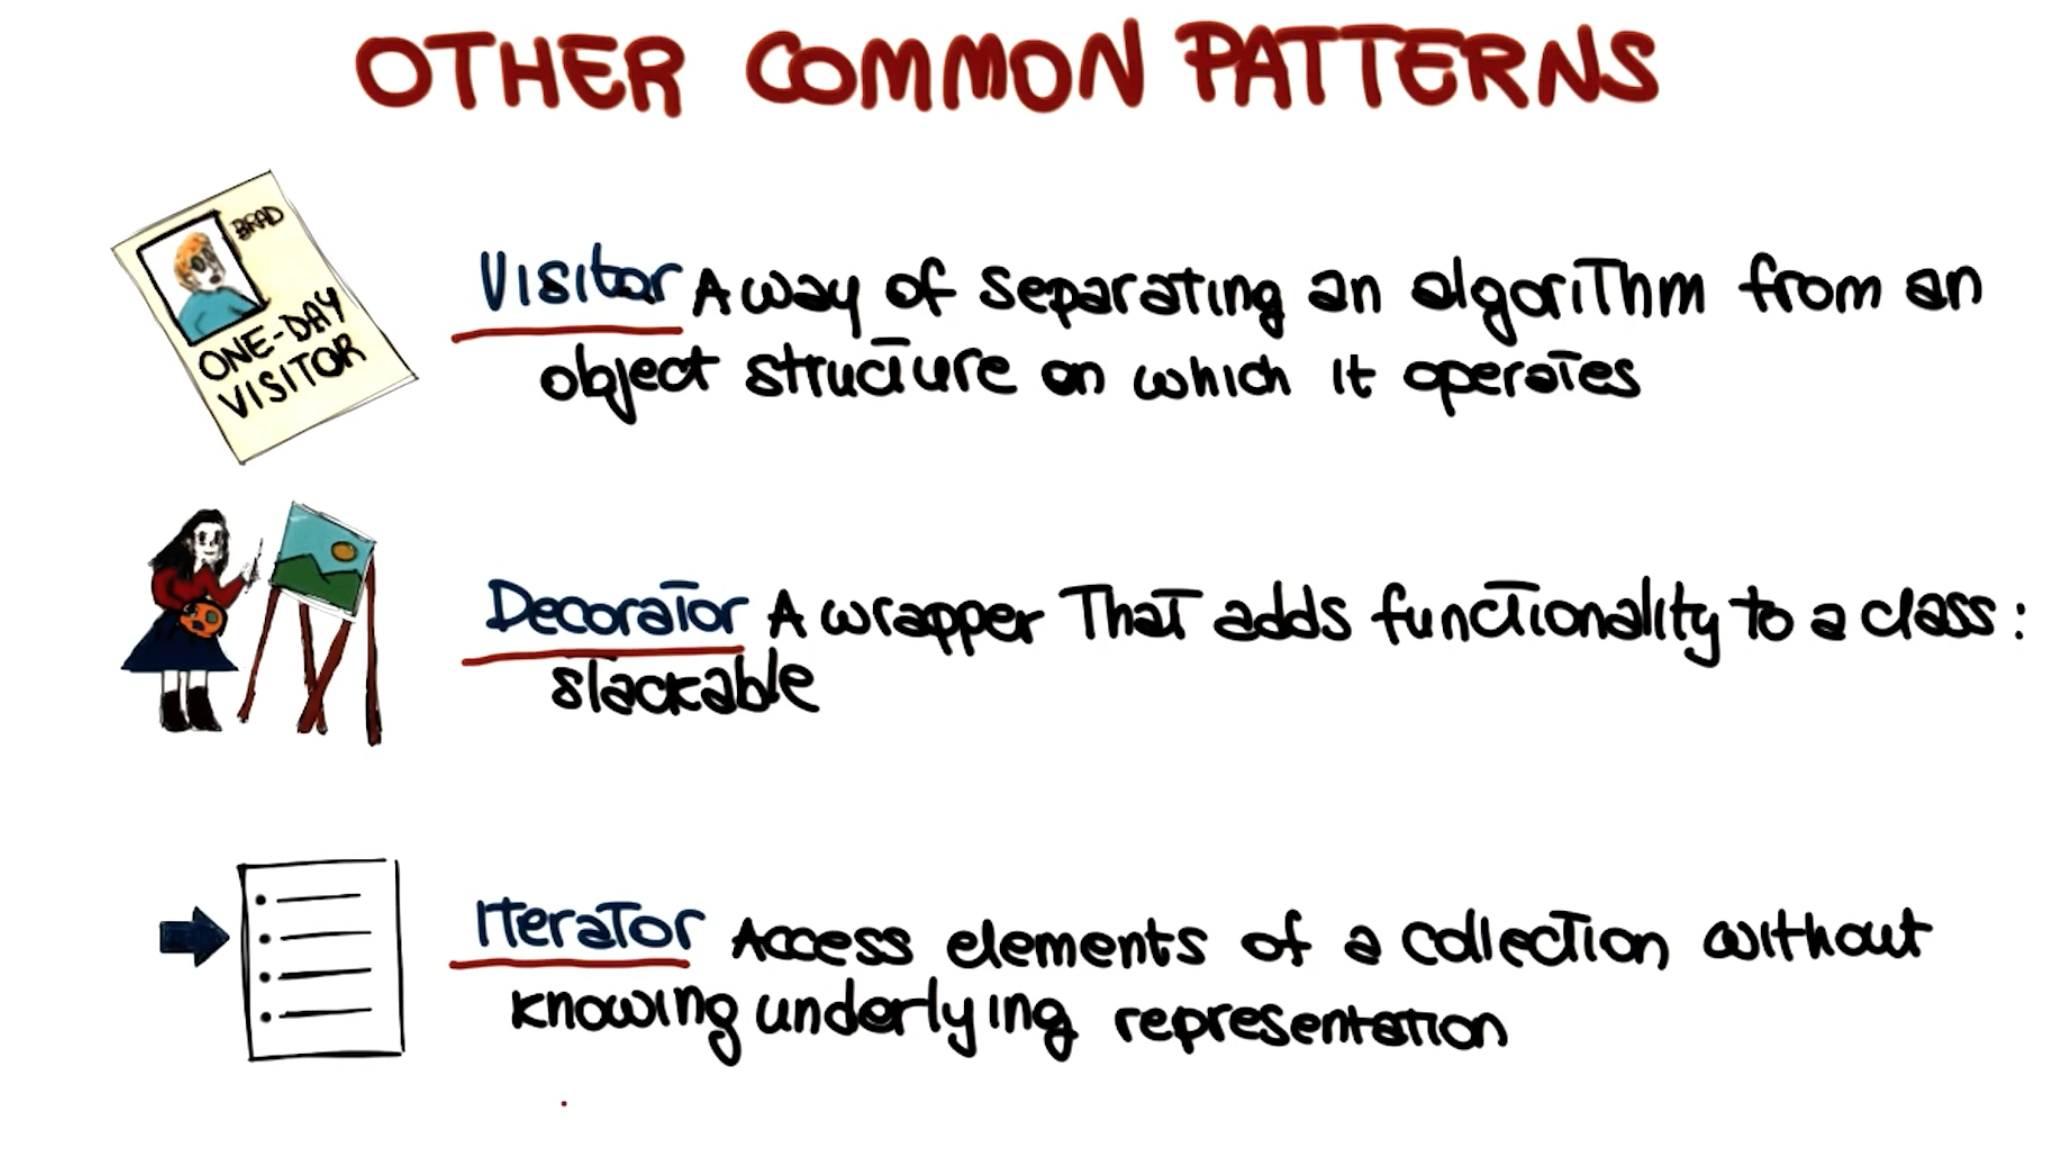 OTHER COMMON PATTERNS
BRAD
ONE-DAY
VISITOR
Visitor A way of separating an algorithm from an
object structure on which it operates
Decorator A wrapper That adds functionality to a class:
stackable
Iterator Access elements of a collection without
knowing underlying representation